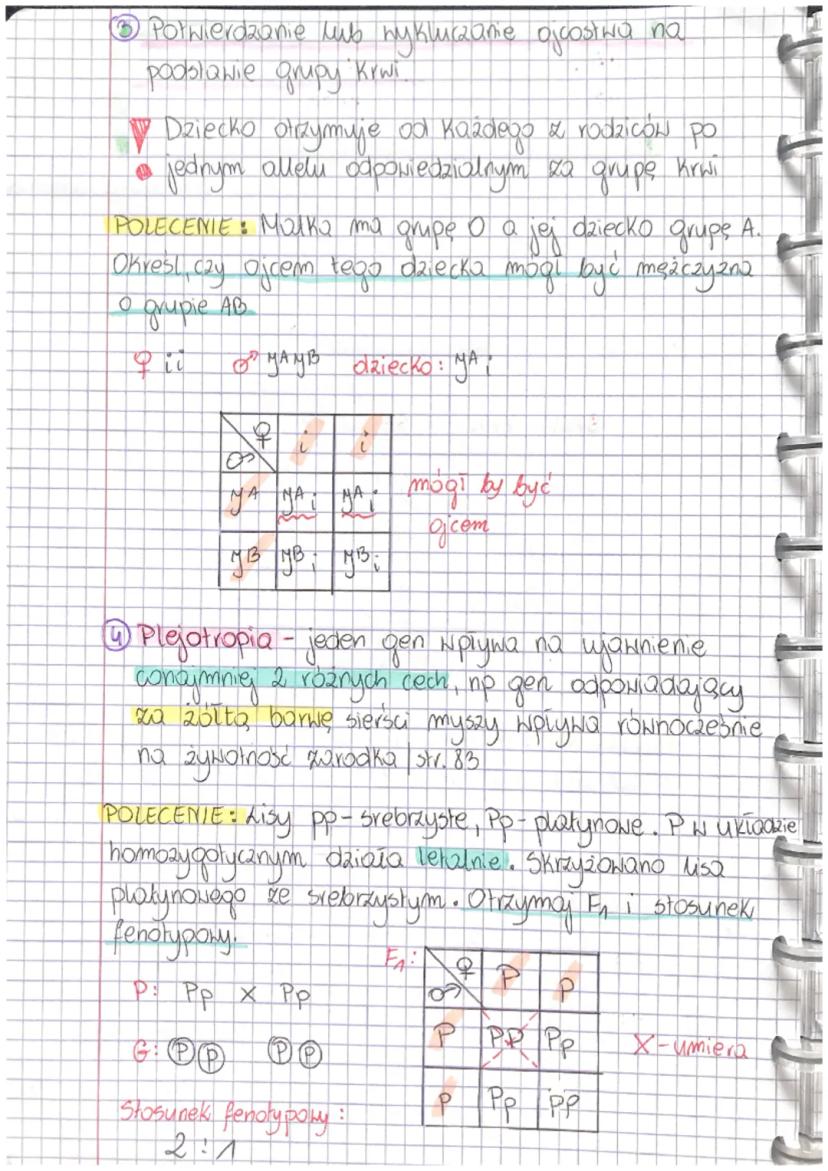 ③ Potwierdzanie lub wykluczanie ojcostwa na
podstawie grupy krwi.
Dziecko otrzymuje od każdego z rodziców po
jednym allelu odpowiedzialnym za grupę krwi
POLECENIE: Matka ma grupę O a jej dziecko grupę A.
Określ, czy ojcem tego dziecka mógł być mężczyzna
o grupie AB
♀ ii ♂ IᴬIᴮ dziecko: Iᴬi
♂ ♀ i i
Iᴬ Iᴬi Iᴬi
mógł by być
ojcem
Iᴮ Iᴮi Iᴮi
④ Plejotropia - jeden gen wpływa na ujawnienie
conajmniej 2 różnych cech, np gen odpowiadający
za żółtą barwę sierści myszy wpływa równocześnie
na żywotność zarodka | str. 83
POLECENIE: Lisy pp - srebrzyste, Pp - platynowe. P w układzie
homozygotycznym działa letalnie. Skrzyżowano lisa
platynowego ze srebrzystym. Otrzymaj F₁ i stosunek
fenotypowy.
F₁:
♂ ♀ P p
P: Pp x Pp
P PP Pp
X - umiera
G: P p P p
p Pp pp
Stosunek fenotypowy:
2 : 1